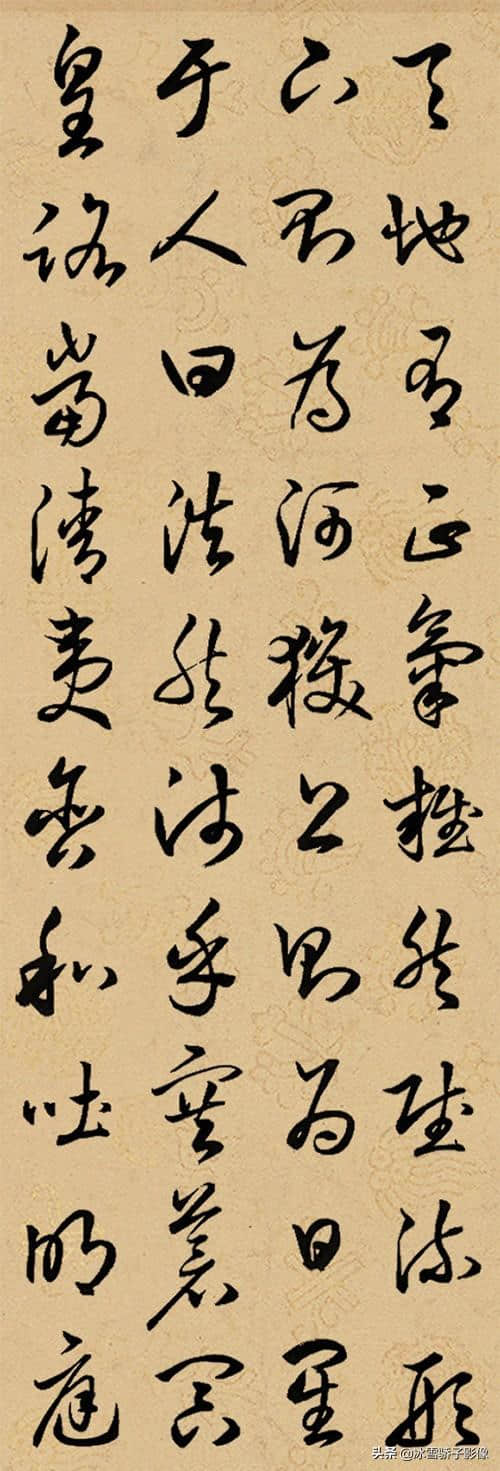 天地有正氣雜然賦流形
下則為河嶽上則為日星
于人曰浩然沛乎塞蒼冥
皇路當清夷含和吐明庭
头条 @冰雪骄子影像